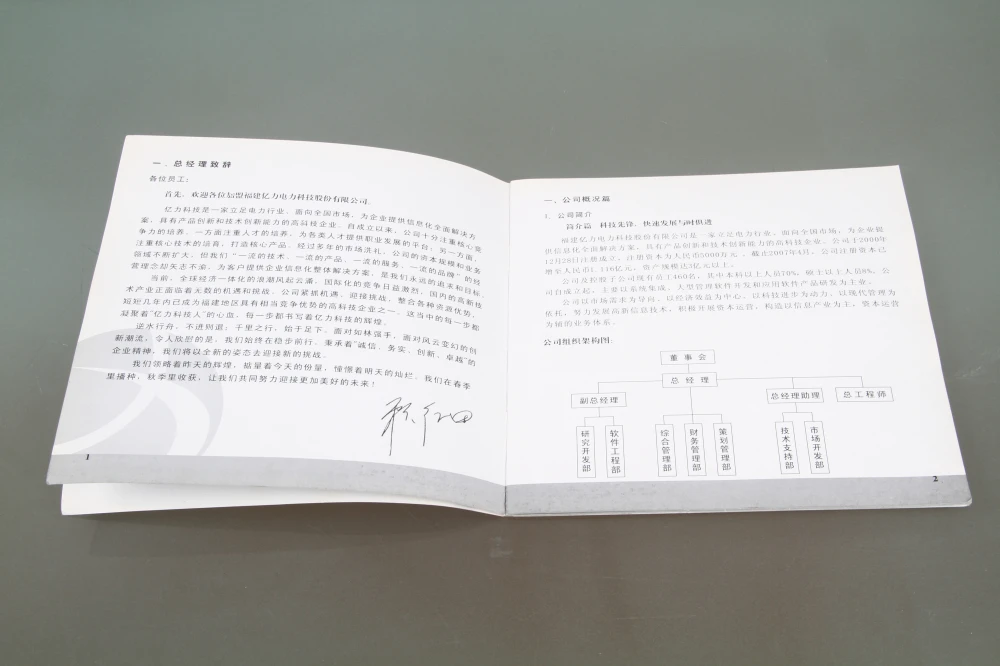 一、总经理致辞
各位员工：
首先，欢迎各位加盟福建亿力电力科技股份有限公司。
亿力科技是一家立足电力行业，面向全国市场，为企业提供信息化全面解决方
案，具有产品创新和技术创新能力的高科技企业。自成立以来，公司十分注重核心竞
争力的培养，一方面注重人才的培养，为各类人才提供职业发展的平台；另一方面，
注重核心技术的培育，打造核心产品。经过多年的市场洗礼，公司的资本规模和业务
领域不断扩大，但我们“一流的技术、一流的产品、一流的服务、一流的品牌”的经
营理念却矢志不渝，为客户提供企业信息化整体解决方案，是我们永远的追求和目标。
当前，全球经济一体化的浪潮风起云涌，国际化的竞争日益激烈，国内的高新技
术产业正面临着无数的机遇和挑战。公司紧抓机遇，迎接挑战，整合各种资源优势，
短短几年内已成为福建地区具有相当竞争优势的高科技企业之一。这当中的每一步都
凝聚着“亿力科技人”的心血，每一步都书写着亿力科技的辉煌。
逆水行舟，不进则退；千里之行，始于足下。面对如林强手，面对风云变幻的创
新潮流，令人欣慰的是，我们始终在稳步前行。秉承着“诚信、务实、创新、卓越”的
企业精神，我们将以全新的姿态去迎接新的挑战。
我们领略着昨天的辉煌，掂量着今天的份量，憧憬着明天的灿烂。我们在春季
里播种，秋季里收获，让我们共同努力迎接更加美好的未来！
1
一、公司概况篇
1、公司简介
简介篇 科技先锋，快速发展与时俱进
福建亿力电力科技股份有限公司是一家立足电力行业，面向全国市场，为企业提
供信息化全面解决方案，具有产品创新和技术创新能力的高科技企业。公司于2000年
12月28日注册成立，注册资本为人民币5000万元，截止2007年4月，公司注册资本已
增至人民币1.116亿元，资产规模达3亿元以上。
公司及控股子公司现有员工460名，其中本科以上人员70%，硕士以上人员8%。公
司自成立起，主要以系统集成、大型管理软件开发和应用软件产品研发为主业。
公司以市场需求为导向，以经济效益为中心，以科技进步为动力，以现代管理为
依托，努力发展高新信息技术，积极开展资本运营，构造以信息产业为主，资本运营
为辅的业务体系。
公司组织架构图：
董事会
总经理
副总经理
总经理助理
总工程师
研究开发部
软件工程部
综合管理部
财务管理部
策划管理部
技术支持部
市场开发部
2